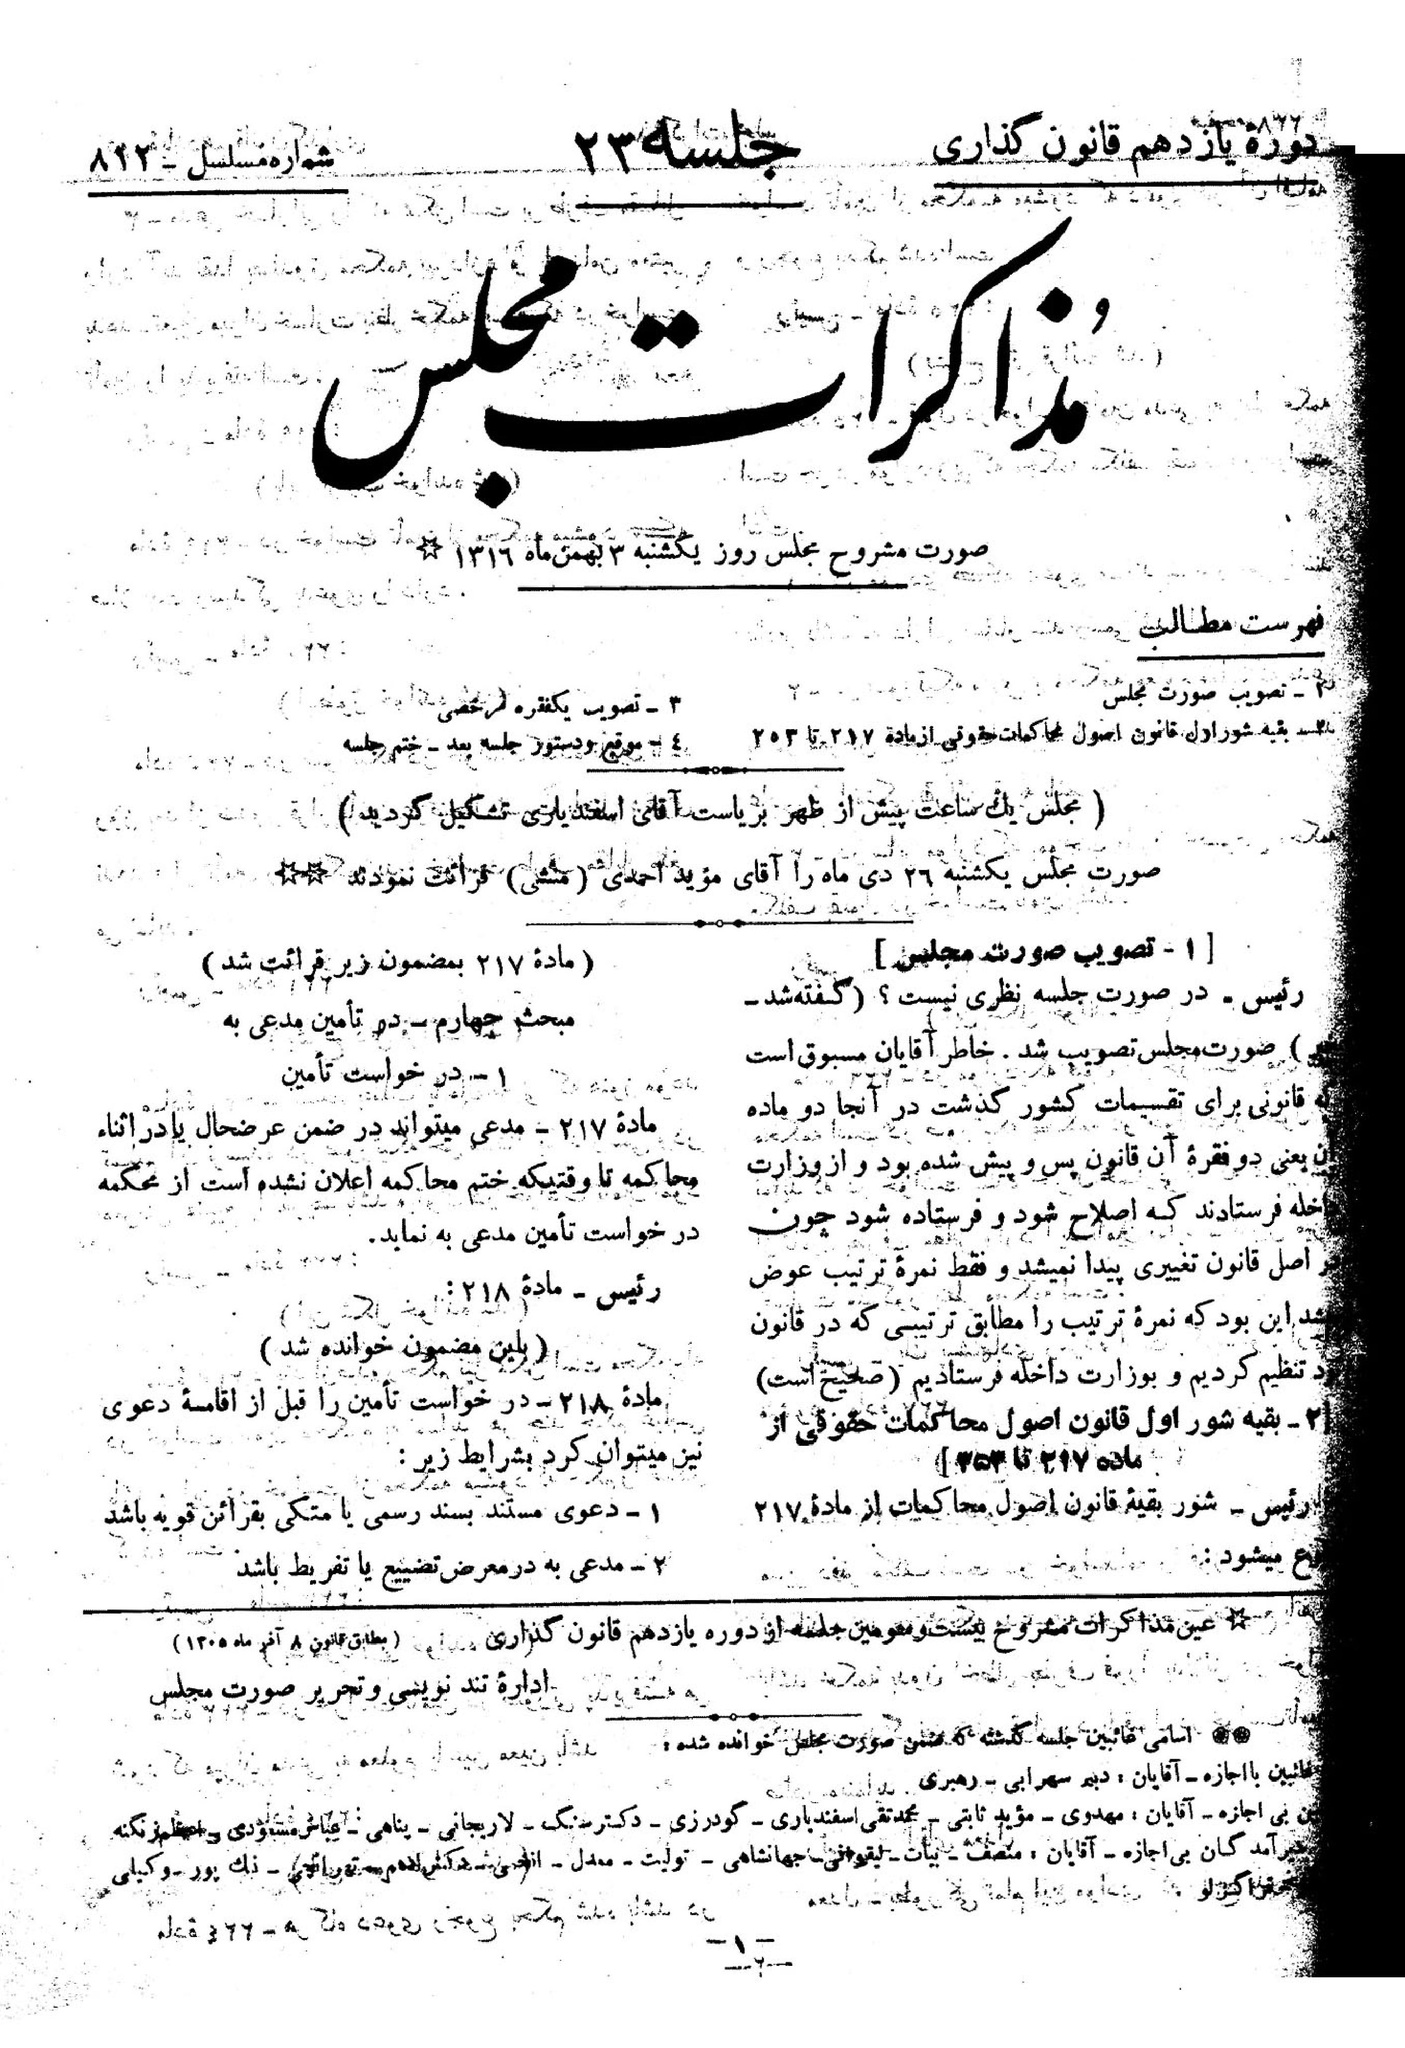 دورهٔ یازدهم قانون گذاری
جلسه ۲۳
شماره مسلسل ـ ۸۲۲
مذاکرات مجلس
صورت مشروح مجلس روز یکشنبه ۳ بهمن ماه ۱۳۱۶ ☆
فهرست مطالب
۱ ـ تصویب صورت مجلس
۲ـ بقیه شور اول قانون اصول محاکمات حقوقی از مادهٔ ۲۱۷ تا ۲۵۳
۳ ـ تصویب یکفقره مرخصی
٤ ـ موقع ودستور جلسه بعد ـ ختم جلسه
( مجلس یك ساعت پیش از ظهر بریاست آقای اسفندیاری تشکیل گردید )
صورت مجلس یکشنبه ۲۶ دی ماه را آقای مؤید احمدی (منشی) قرائت نمودند ☆☆
[ ۱ - تصویب صورت مجلس ]
رئیس ـ در صورت جلسه نظری نیست ؟ (گفته شد ـ
) صورت مجلس تصویب شد . خاطر آقایان مسبوق است
قانونی برای تقسیمات کشور گذشت در آنجا دو ماده
یعنی دو فقرهٔ آن قانون پس و پیش شده بود و از وزارت
داخله فرستادند که اصلاح شود و فرستاده شود چون
اصل قانون تغییری پیدا نمیشد و فقط نمرهٔ ترتیب عوض
این بود که نمرهٔ ترتیب را مطابق ترتیبی که در قانون
تنظیم کردیم و بوزارت داخله فرستادیم (صحیح است)
[۲ ـ بقیه شور اول قانون اصول محاکمات حقوقی از
ماده ۲۱۷ تا ۳۵۳ ]
رئیس ـ شور بقیهٔ قانون اصول محاکمات از مادهٔ ۲۱۷
میشود :
( مادهٔ ۲۱۷ بمضمون زیر قرائت شد )
مبحث چهارم ـ در تأمین مدعی به
۱ ـ در خواست تأمین
مادهٔ ۲۱۷ ـ مدعی میتواند در ضمن عرضحال یا در اثناء
محاکمه تا وقتیکه ختم محاکمه اعلان نشده است از محکمه
در خواست تأمین مدعی به نماید.
رئیس ـ مادهٔ ۲۱۸ :
( باین مضمون خوانده شد )
مادهٔ ۲۱۸ ـ در خواست تأمین را قبل از اقامهٔ دعوی
نیز میتوان کرد بشرایط زیر :
۱ ـ دعوی مستند بسند رسمی یا متکی بقرائن قویه باشد
۲ ـ مدعی به در معرض تضییع یا تفریط باشد
☆ عین مذاکرات مشروح بیست و سومین جلسه از دوره یازدهم قانون گذاری (مطابق قانون ۸ آذر ماه ۱۳۰۵)
ادارهٔ تند نویسی و تحریر صورت مجلس
اسامی غائبین جلسه گذشته که ضمن صورت مجلس خوانده شده :
غائبین با اجازه ـ آقایان : دبیر سهرابی ـ رهبری
بی اجازه ـ آقایان : مهدوی ـ مؤید ثابتی ـ محمدتقی اسفندیاری ـ گودرزی ـ دکتر سنگ ـ لاریجانی ـ پناهی ـ عباس مسعودی ـ اعظم زنگنه
آمدگان بی اجازه ـ آقایان : منصف ـ بیات ـ لیقوانی ـ جهانشاهی ـ تولیت ـ معدل ـ ـ دکتر ادهم ـ ـ ـ وکیلی
ـ۱ـ